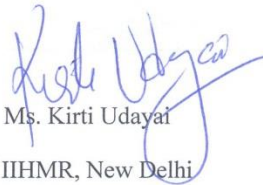 Kirti Udayai
Ms. Kirti Udayai
IIHMR, New Delhi